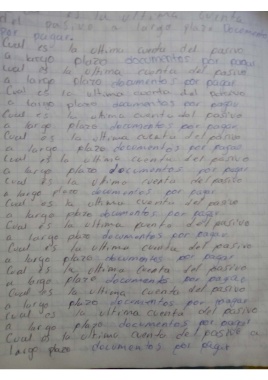 es la ultima cuenta
del pasivo a largo plazo documentos
por pagar.
Cual es la ultima cuenta del pasivo
a largo plazo documentos por pagar
Cual es la ultima cuenta del pasivo
a largo plazo documentos por pagar
Cual es la ultima cuenta del pasivo
a largo plazo documentos por pagar
Cual es la ultima cuenta del pasivo
a largo plazo documentos por pagar
Cual es la ultima cuenta del pasivo
a largo plazo documentos por pagar
Cual es la ultima cuenta del pasivo
a largo plazo documentos por pagar
Cual es la ultima cuenta del pasivo
a largo plazo documentos por pagar
Cual es la ultima cuenta del pasivo
a largo plazo documentos por pagar
Cual es la ultima cuenta del pasivo
a largo plazo documentos por pagar
Cual es la ultima cuenta del pasivo
a largo plazo documentos por pagar
Cual es la ultima cuenta del pasivo
a largo plazo documentos por pagar
Cual es la ultima cuenta del pasivo
a largo plazo documentos por pagar
Cual es la ultima cuenta del pasivo a
largo plazo documentos por pagar